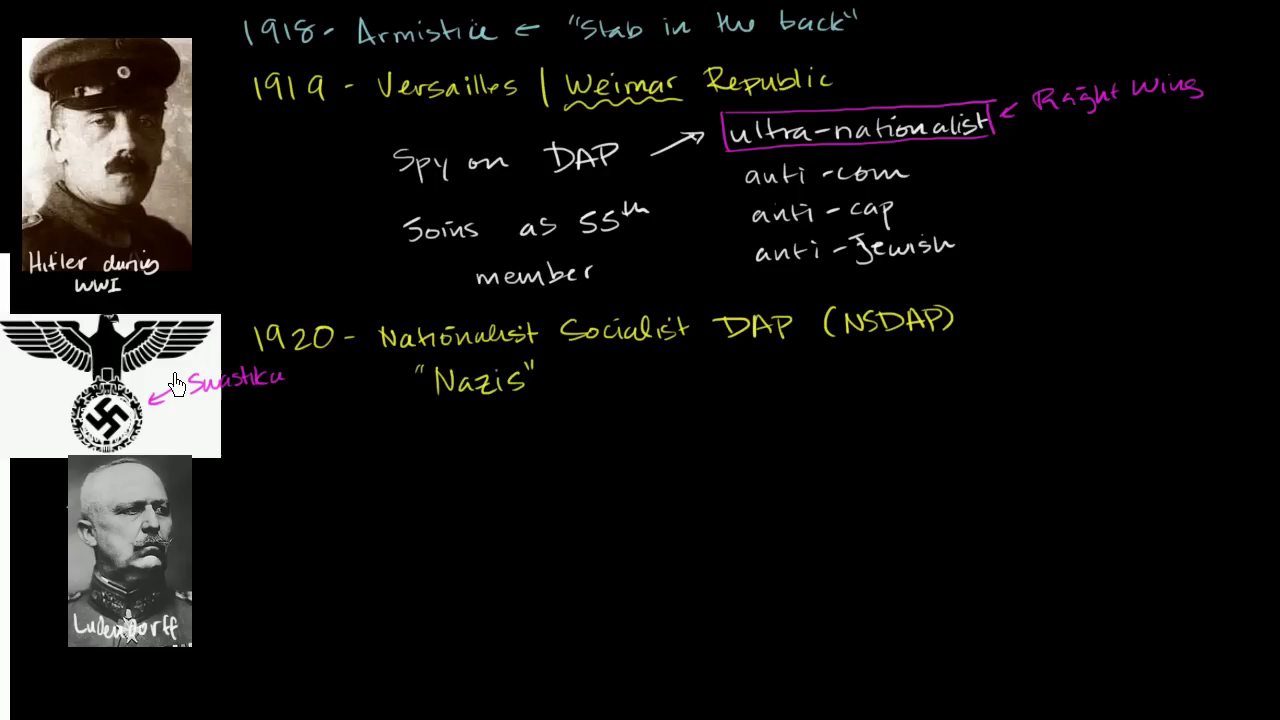 1918 - Armistice ← "Stab in the back"
1919 - Versailles | Weimar Republic
Right Wing
Spy on DAP → ultra-nationalist
anti-com
anti-cap
anti-Jewish
Joins as 55th
member
Hitler during
WWI
1920 - Nationalist Socialist DAP (NSDAP)
"Nazis"
Swastika
Ludendorff